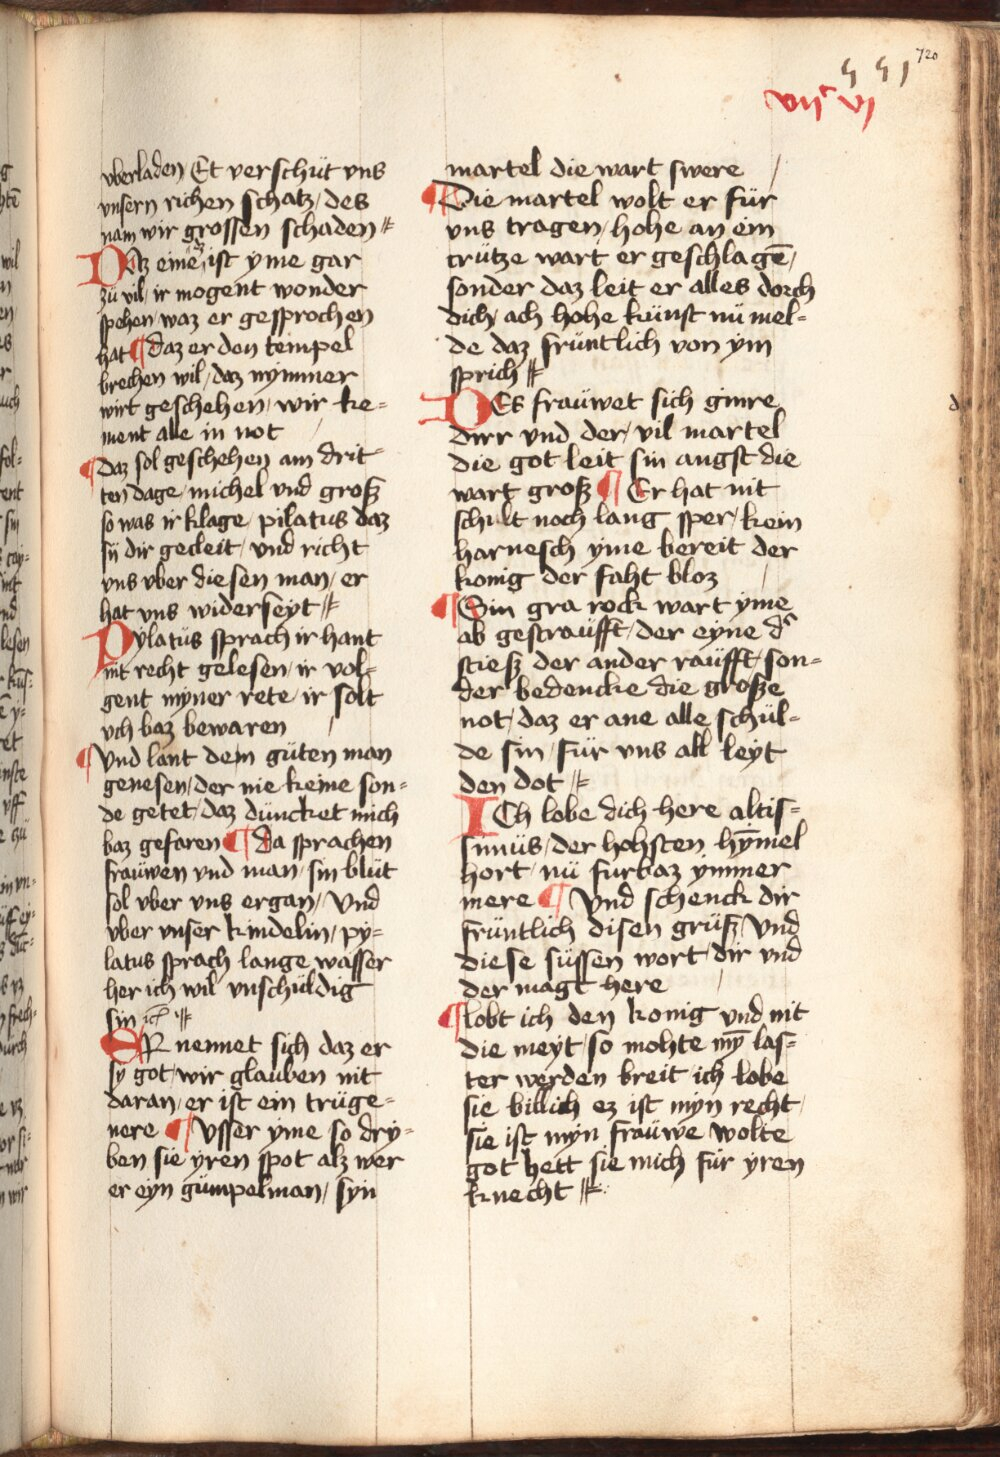 720
551
vijc vj
vberladen Et verschüt vns
vnsern richen schatz / des
nam wir grossen schaden //
Daz eine ist yme gar
zü vil / ir mogent wonder
spehen / waz er gesprochen
hat ¶ daz er den tempel
brechen wil / daz nymmer
wirt geschehen / wir ke=
ment alle in not /
¶ Daz sol geschehen am drit=
ten dage / michel vnd groß
so was ir klage / pilatus daz
sÿ dir gecleit / vnd richt
vns vber diesen man / er
hat vns widerseyt //
Pylatüs sprach ir hant
nit recht gelesen / ir vol=
gent myner rete / ir solt
vch baz bewaren /
¶ Vnd lant dem güten man
genesen / der nie keine son=
de getet / daz düncket mich
baz gefaren ¶ Da sprachen
frauwen vnd man / sin blüt
sol vber vns ergan / Vnd
vber vnser kindelin / py=
latus sprach lange wasser
her ich wil vnschüldig
sin ich //
ER nennet sich daz er
sy got / wir glauben nit
daran / er ist ein trüge=
nere ¶ Vsser yme so dry=
ben sie yren spot alz wer
er eyn gümpelman / syn
martel die wart swere /
¶ Die martel wolt er für
vns tragen / hohe an ein
crütze wart er geschlagē /
sonder daz leit er alles dorch
dich / ach hohe künst nü mel=
de daz früntlich von ym
sprich //
DEs fraüwet sich ginre
dirr vnd der / vil martel
die got leit sin angst die
wart groß ¶ Er hat nit
schilt noch lang sper / kein
harnesch yme bereit der
konig der faht bloz /
¶ Sin gra rock wart yme
ab gestraüfft / der eyne d'
stieß der ander raüfft / son=
der bedencke die große
not / daz er ane alle schül=
de sin / für vns all leyt
den dot //
ICh lobe dich here altis=
simüs / der hohsten hymel
hort / nü furbaz ymmer
mere ¶ Vnd schenck dir
früntlich disen grüß / Vnd
diese süssen wort / dir vnd
der magt here /
¶ lobt ich den konig vnd nit
die meyt / so mohte mȳ las=
ter werden breit ich lobe
sie billich ez ist myn recht /
sie ist myn frauwe wolte
got hett sie mich für yren
knecht //